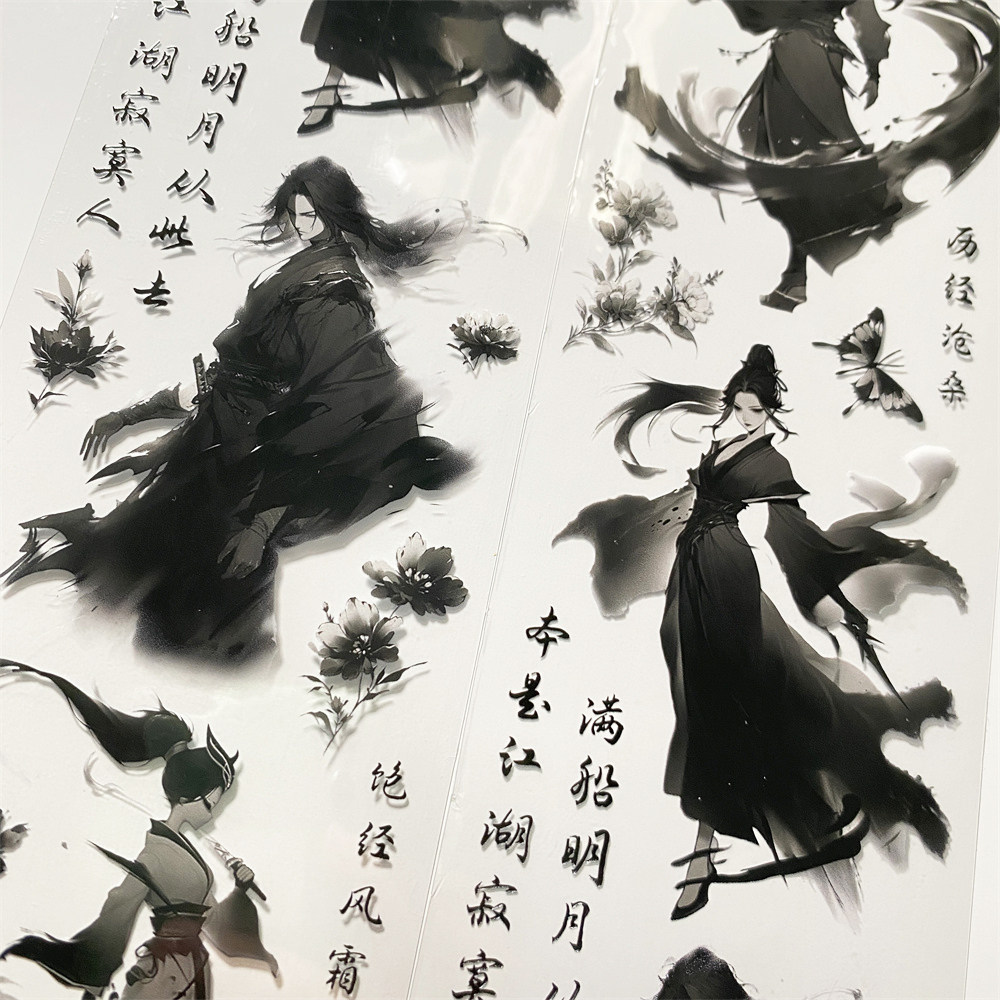 船明月从此去
江湖寂寞人
历经沧桑
满船明月从
本是江湖寂寞
饱经风霜